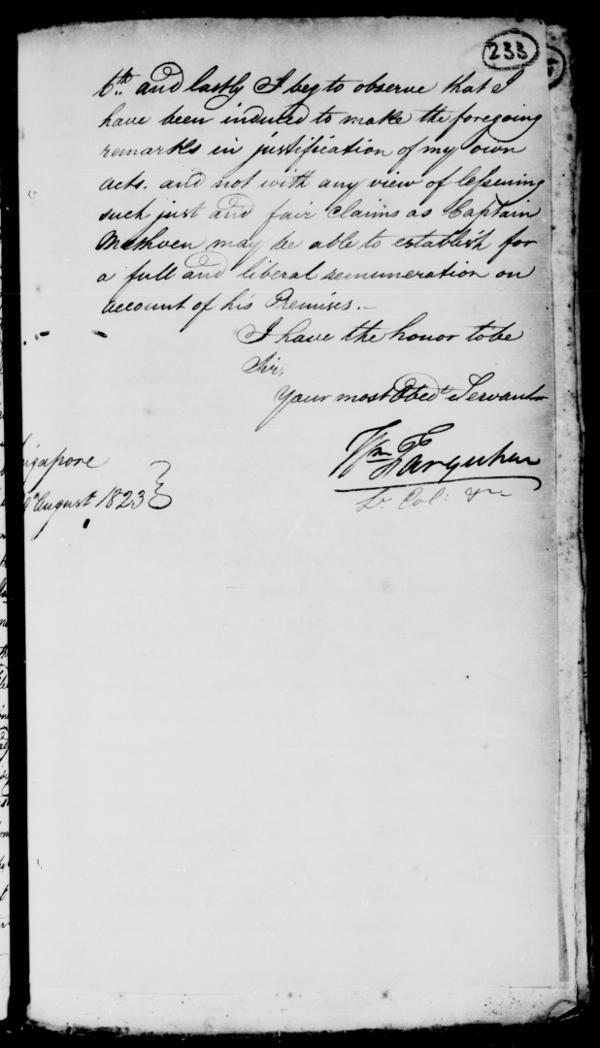 233
6.th and lastly I beg to observe that I
have been induced to make the foregoing
remarks in justification of my own
acts. and not with any view of lessening
such just and fair claims as Captain
Methven may be able to establish for
a full and liberal remuneration on
account of his Premises.—
I have the honor to be
Sir,
Your most Obed.t Servant
Wm Farquhar
Lt. Col:
ngapore
August 1823